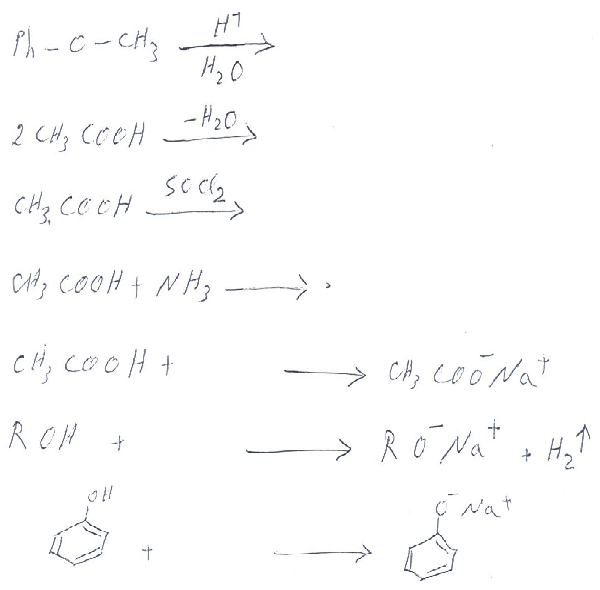 Ph - O - CH3 H+ / H2O →
2 CH3 COOH -H2O →
CH3 COOH SOCl2 →
CH3 COOH + NH3 →
CH3 COOH + → CH3 COO- Na+
R OH + → R O- Na+ + H2↑
OH + → O- Na+